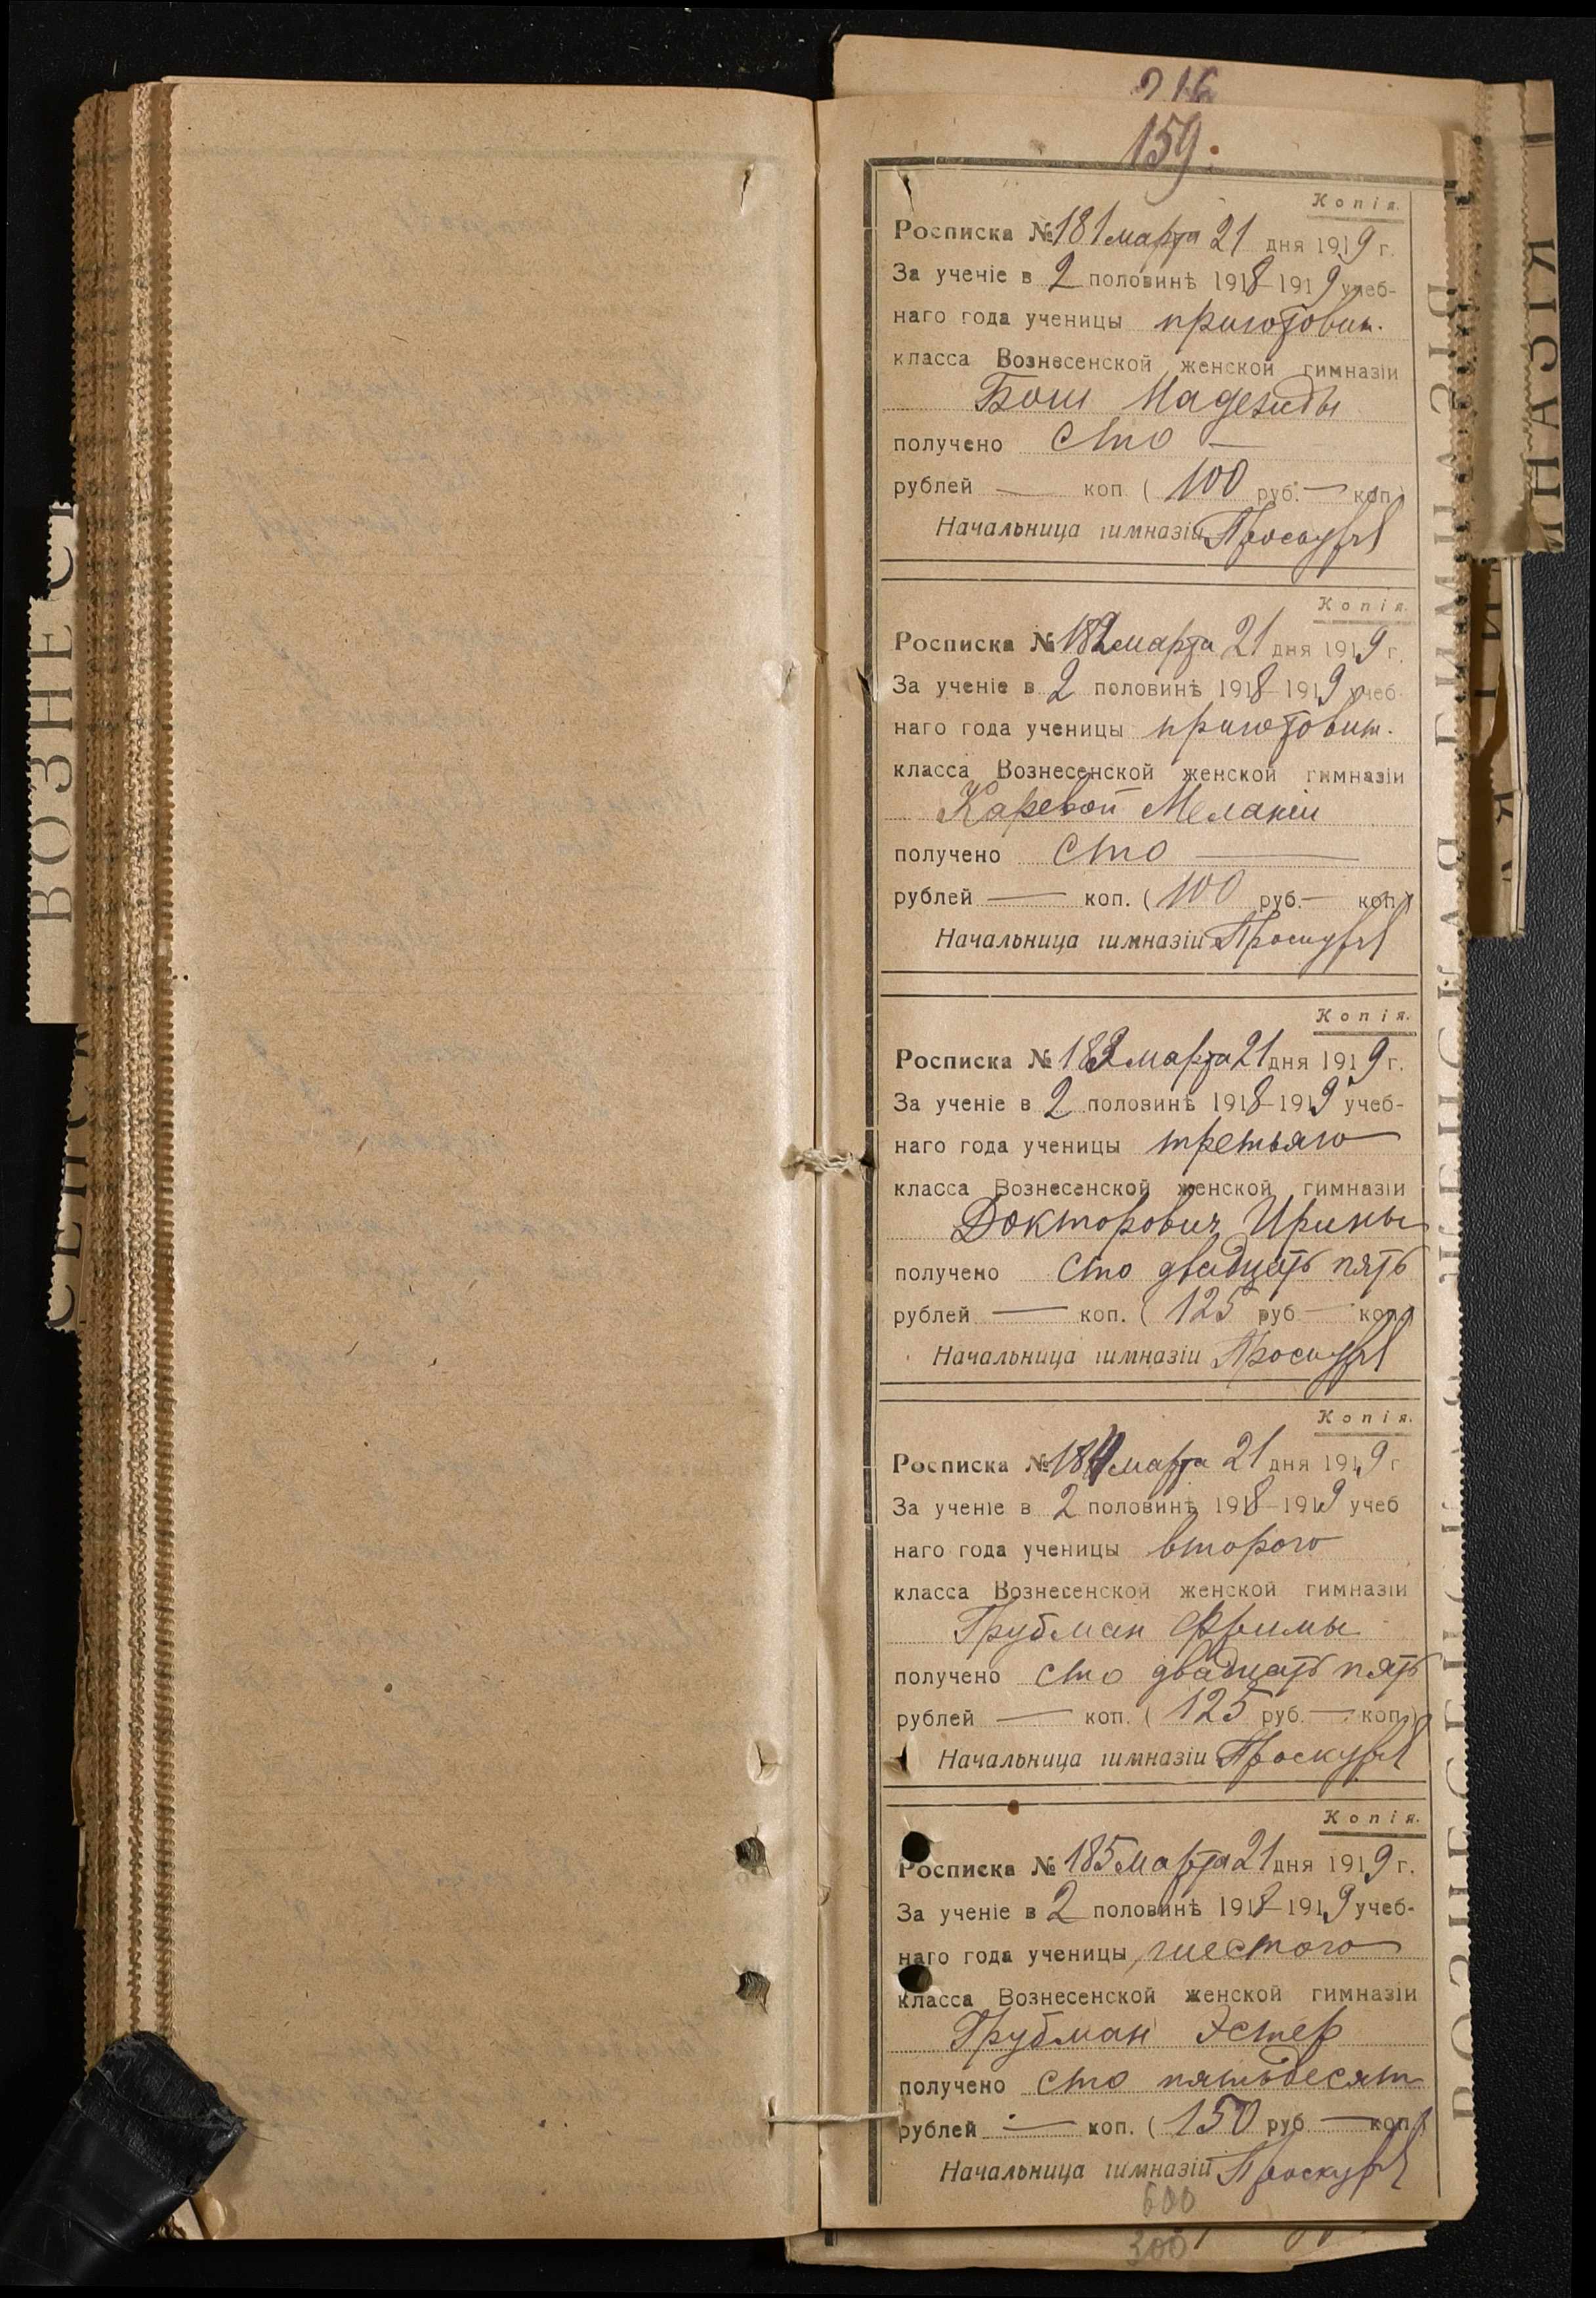 216
159.
Копія.
Росписка № 181 марта 21 дня 1919 г.
За ученіе в 2 половинѣ 1918-1919 учеб-
наго года ученицы приготовит.
класса Вознесенской женской гимназіи
Бош Надежды
получено сто —
рублей — коп. ( 100 руб. — коп.)
Начальница гимназіи
Копія.
Росписка № 182 марта 21 дня 1919 г.
За ученіе в 2 половинѣ 1918-1919 учеб-
наго года ученицы приготовит.
класса Вознесенской женской гимназіи
Каревой Меланіи
получено сто —
рублей — коп. ( 100 руб. — коп.)
Начальница гимназіи
Копія.
Росписка № 183 марта 21 дня 1919 г.
За ученіе в 2 половинѣ 1918-1919 учеб-
наго года ученицы третьяго
класса Вознесенской женской гимназіи
Докторович Ирины
получено сто двадцать пять
рублей — коп. ( 125 руб. — коп.)
Начальница гимназіи
Копія.
Росписка № 184 марта 21 дня 1919 г.
За ученіе в 2 половинѣ 1918-1919 учеб
наго года ученицы второго
класса Вознесенской женской гимназіи
Грубман Фримы
получено сто двадцать пять
рублей — коп. ( 125 руб. — коп.)
Начальница гимназіи
Копія.
Росписка № 185 марта 21 дня 1919 г.
За ученіе в 2 половинѣ 1918-1919 учеб-
наго года ученицы шестого
класса Вознесенской женской гимназіи
Грубман Эстер
получено сто пятьдесят
рублей — коп. ( 150 руб. — коп.)
Начальница гимназіи
600
300
ВОЗНЕС
СЕНСК